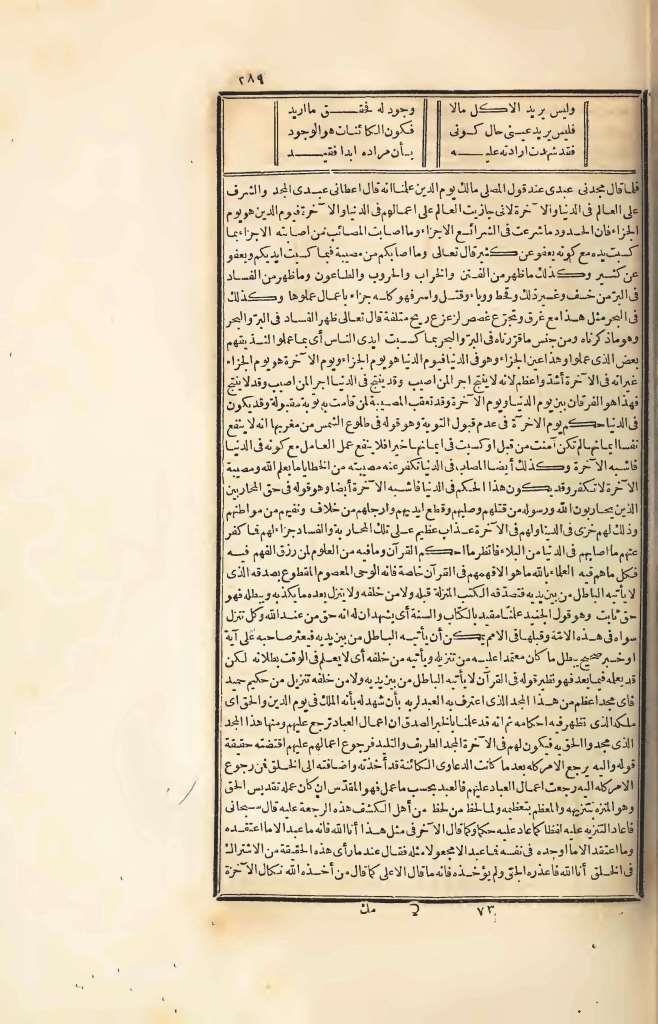 ٢٨٩
وليس يريد الا كل مالا وجود له فحقق ما اريد
فليس يريد عيني حال كوني فكون الكائنات هو الوجود
فقد شهدت ارادته عليه بأن مراده ابدا فقيد
فلما قال مجدني عبدي عند قول المصلى مالك يوم الدين علمنا انه قال اعطاني عبدي المجد والشرف
على العالم في الدنيا والآخرة لاني جازيت العالم على اعمالهم في الدنيا والآخرة فيوم الدين هو يوم
الجزاء فان الحدود ما شرعت في الشرائع الاجزاء وما اصابت المصائب من اصابته الاجزاء بما
كسبت يده مع كونه يعفو عن كثير قال تعالى وما اصابكم من مصيبة فبما كسبت ايديكم ويعفو
عن كثير وكذلك ما ظهر من الفتن والخراب والحروب والطاعون وما ظهر من الفساد
في البر من خسف وغير ذلك وقحط ووباء وقتل واسر فهو كله جزاء باعمال عملوها وكذلك
في البحر مثل هذا مع غرق وتجرع غصص لزعزع ريح متلفة قال تعالى ظهر الفساد في البر والبحر
وهو ما ذكرناه ومن جنس ما قررناه في البر والبحر بما كسبت ايدى الناس أى بما عملوا لنذيقهم
بعض الذى عملوا وهذا عين الجزاء وهو في الدنيا فيوم الدنيا هو يوم الجزاء ويوم الآخرة هو يوم الجزاء
غير انه في الآخرة أشد واعظم لانه لا ينتج اجر المن اصيب وقد ينتج في الدنيا اجر المن اصيب وقد لا ينتج
فهذا هو الفرقان بين يوم الدنيا ويوم الآخرة وقد تعقب المصيبة لمن قامت به توبة مقبولة وقد يكون
في الدنيا حكم يوم الآخرة في عدم قبول التوبة وهو قوله في طلوع الشمس من مغربها انه لا ينفع
نفسا ايمانها لم تكن آمنت من قبل او كسبت في ايمانها خيرا فلا ينفع عمل العامل مع كونه في الدنيا
فاشبه الآخرة وكذلك أيضا المصاب في الدنيا تكفر عنه مصيبته من الخطايا ما يعلم الله ومصيبة
الآخرة لا تكفر وقد يكون هذا الحكم في الدنيا فاشبه الآخرة أيضا وهو قوله في حق المحاربين
الذين يحاربون الله ورسوله من قتلهم وصلبهم وقطع ايديهم وارجلهم من خلاف ونفيهم من مواطنهم
وذلك لهم خزى في الدنيا ولهم في الآخرة عذاب عظيم على تلك المحاربة والفساد جزاء لهم فما كفر
عنهم ما اصابهم في الدنيا من البلاء فانظر ما احكم القرآن وما فيه من العلوم لمن رزق الفهم فيه
فكل ما هم فيه العلماء بالله ما هو الا فهمهم في القرآن خاصة فانه الوحى المعصوم المقطوع بصدقه الذى
لا يأتيه الباطل من بين يديه فتصدقه الكتب المنزلة قبله ولا من خلفه ولا ينزل بعده ما يكذبه ويبطله فهو
حق ثابت وهو قول الجنيد علمنا مقيد بالكتاب والسنة أى يشهد ان له انه حق من عند الله وكل تنزل
سواه في هذه الامة وقبلها في الامم يمكن أن يأتيه الباطل من بين يديه فيعثر صاحبه على آية
او خبر صحيح يبطل ما كان معتمدا عليه من تنزيله ويأتيه من خلفه أى لا يعلم في الوقت بطلانه لكن
قد يعلمه فيما بعد فهو نظير قوله في القرآن لا يأتيه الباطل من بين يديه ولا من خلفه تنزيل من حكيم حميد
فاى مجد اعظم من هذا المجد الذى اعترف به العبد لربه بأن شهد له بأنه الملك في يوم الدين والخلق اى
ملكه الذى تظهر فيه احكامه ثم انه قد علمنا بالخبر الصدق ان اعمال العباد ترجع عليهم ومنها هذا المجد
الذى مجدوا الحق به فيكون لهم في الآخرة المجد الطريف والتليد فرجوع اعمالهم عليهم اقتضته حقيقة
قوله واليه يرجع الامر كله بعد ما كانت الدعاوى الكائنة قد أخذته واضافته الى الخلق فمن رجوع
الامر كله اليه رجعت اعمال العباد عليهم فالعبد بحسب ما عمل فهو المقدس ان كان عمله تقديس الحق
وهو المنزه بتنزيهه والمعظم بتعظيمه ولما لحظ من لحظ من أهل الكشف هذه الرجعة عليه قال سبحانى
فاعاد التنزيه عليه لفظا كما عاد عليه حكما وكما قال الآخر في مثل هذا أنا الله فانه ما عبد الا ما اعتقده
وما اعتقد الا ما اوجده في نفسه فما عبد الا مجعولا مثله فقال عند ما رأى هذه الحقيقة من الاشتراك
في الخلق أنا الله فاعذره الحق ولم يؤاخذه فانه ما قال الاعلى كما قال من أخذه الله نكال الآخرة
٧٣ مك